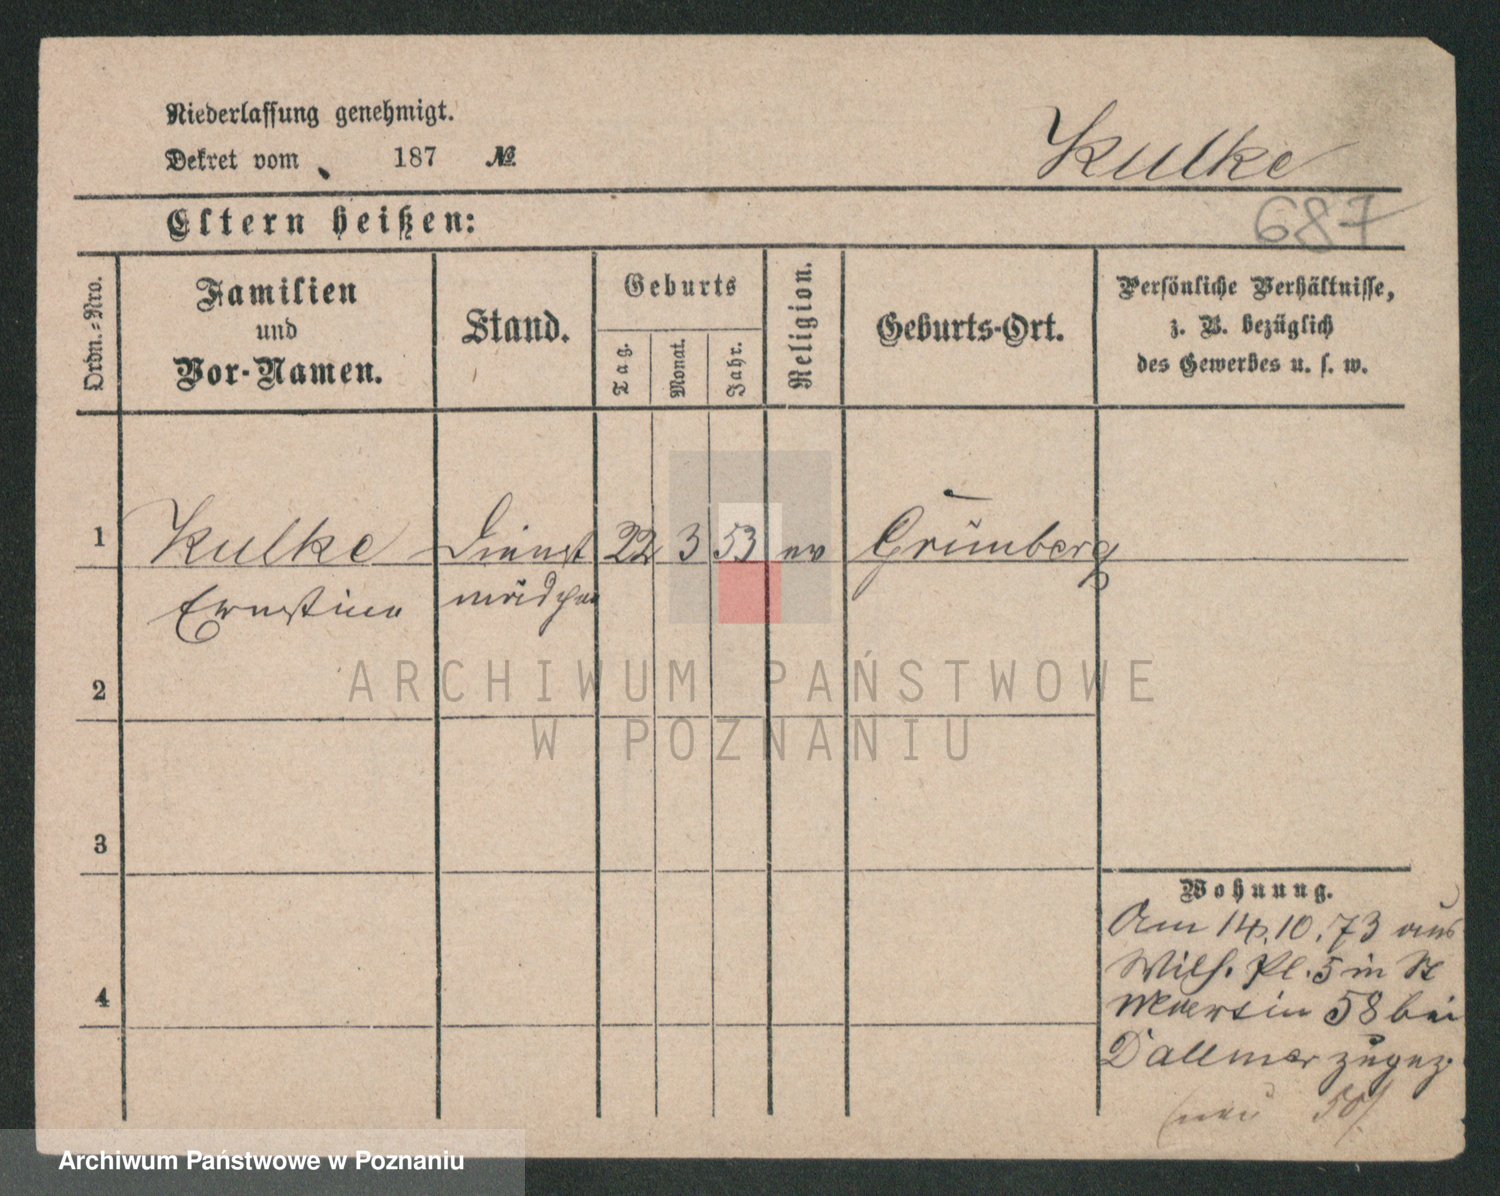 Niederlassung genehmigt.
Dekret vom 187 №
Kulke
687
Eltern heißen:
Ordn.-Nro.
Familien
und
Vor-Namen.
Stand.
Geburts
Tag.
Monat.
Jahr.
Religion.
Geburts-Ort.
Persönliche Verhältnisse,
z. B. bezüglich
des Gewerbes u. s. w.
1 Kulke Dienst 22 3 53 ev Grünberg
Ernstine mädchen
2
3
4
Wohnung.
Am 14.10.73 aus
Wilh. Pl. 5 in St
Martin 58 bei
Dallmer zugez.
(neu 50)
ARCHIWUM PAŃSTWOWE
W POZNANIU
Archiwum Państwowe w Poznaniu